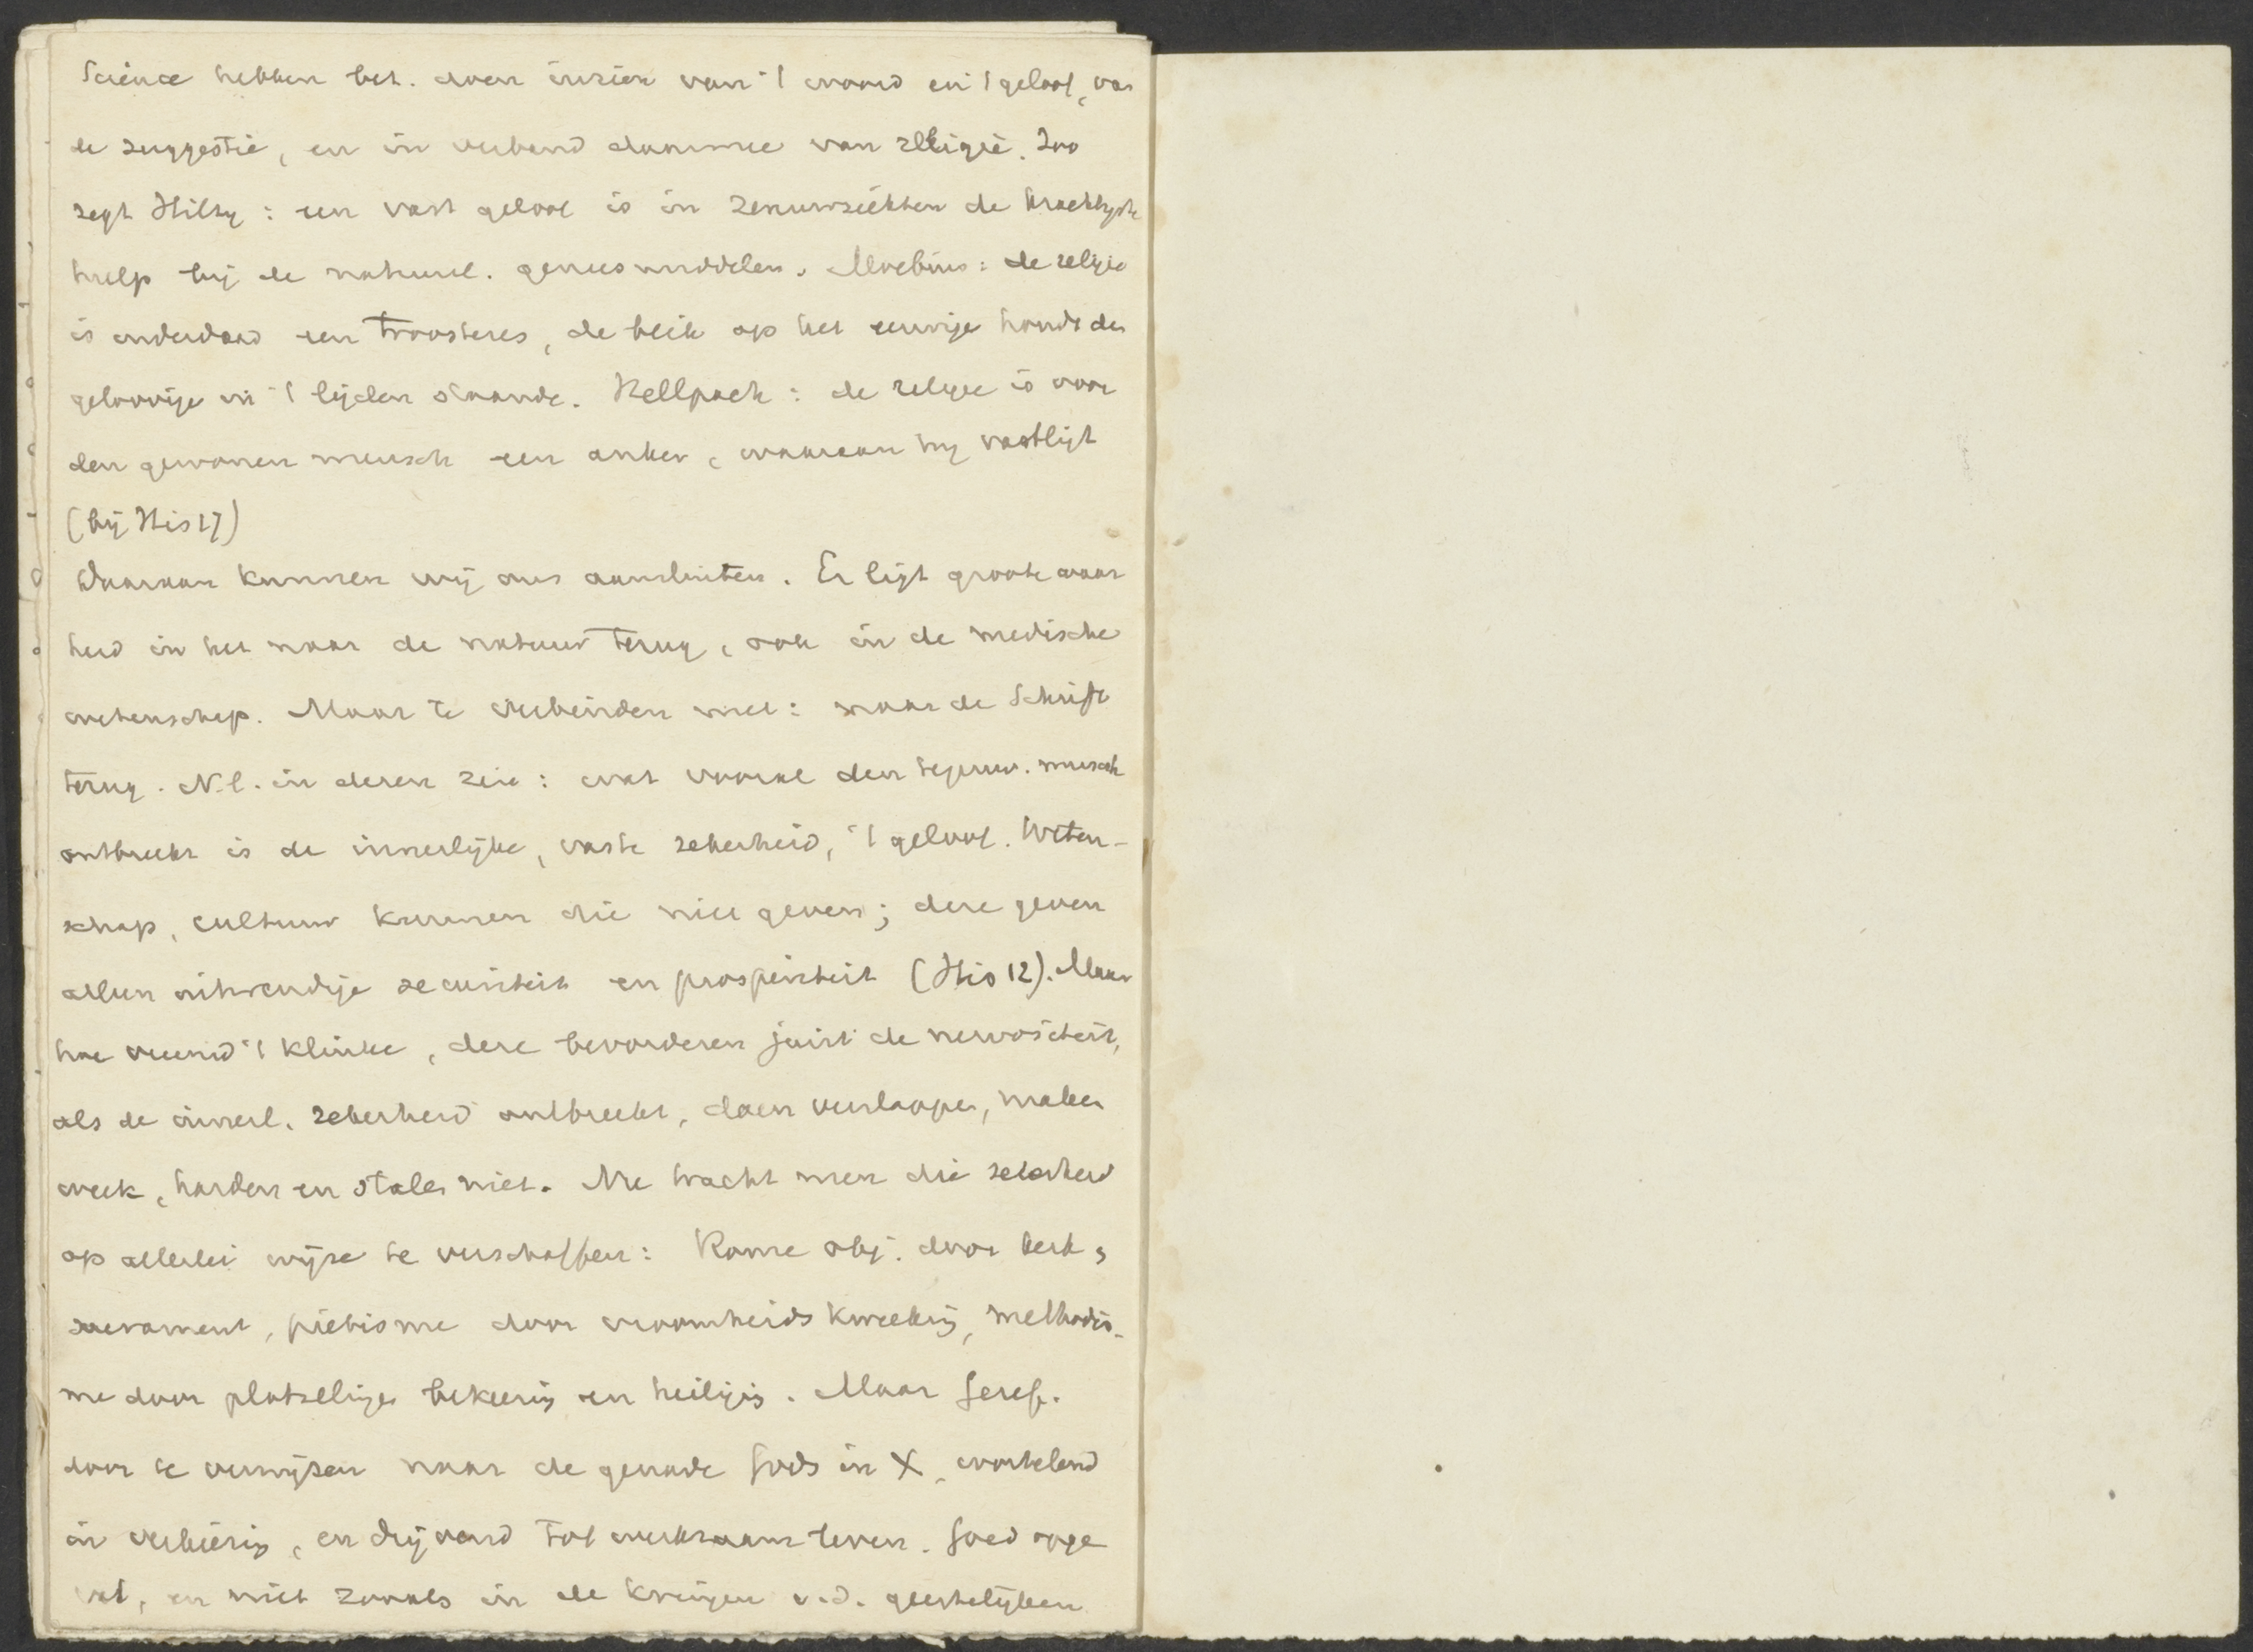 Science hebben bet. doen inzien van 't woord en 't geloof, van
de suggestie, en in verband daarmee van religie. Zoo
zegt Hilty: een vast geloof is in zenuwziekten de krachtigste
hulp bij de natuurl. geneesmiddelen. Moebius: de religie
is inderdaad een troosteres, de blik op het eeuwige houdt den
geloovige in 't lijden staande. Hellpach: de religie is voor
den gewonen mensch een anker, waaraan hij vastligt
(bij His 17)
Daaraan kunnen wij ons aansluiten. Er ligt groote waar
heid in het naar de natuur terug, ook in de medische
wetenschap. Maar te verbinden met: naar de Schrift
terug. N.l. in dezen zin: wat vooral den tegenw. mensch
ontbreekt is de innerlijke, vaste zekerheid, 't geloof. Weten-
schap, cultuur kunnen die niet geven; deze geven
alleen uitwendige securiteit en prosperiteit (His 12). Maar
hoe vreemd 't klinke, deze bevorderen juist de nervositeit,
als de innerl. zekerheid ontbreekt, doen verslappen, maken
week, harden en stalen niet. Nu tracht men die zekerheid
op allerlei wijze te verschaffen: Rome obj. door kerk,
sacrament, pietisme door vroomheidskweeking, methodis-
me door plotselinge bekeering en heiliging. Maar Geref.
door te verwijzen naar de genade Gods in X, wortelend
in verkiezing, en drijvend tot werkzaam leven. Goed opge
vat, en niet zooals in de kringen v.d. geestelijken